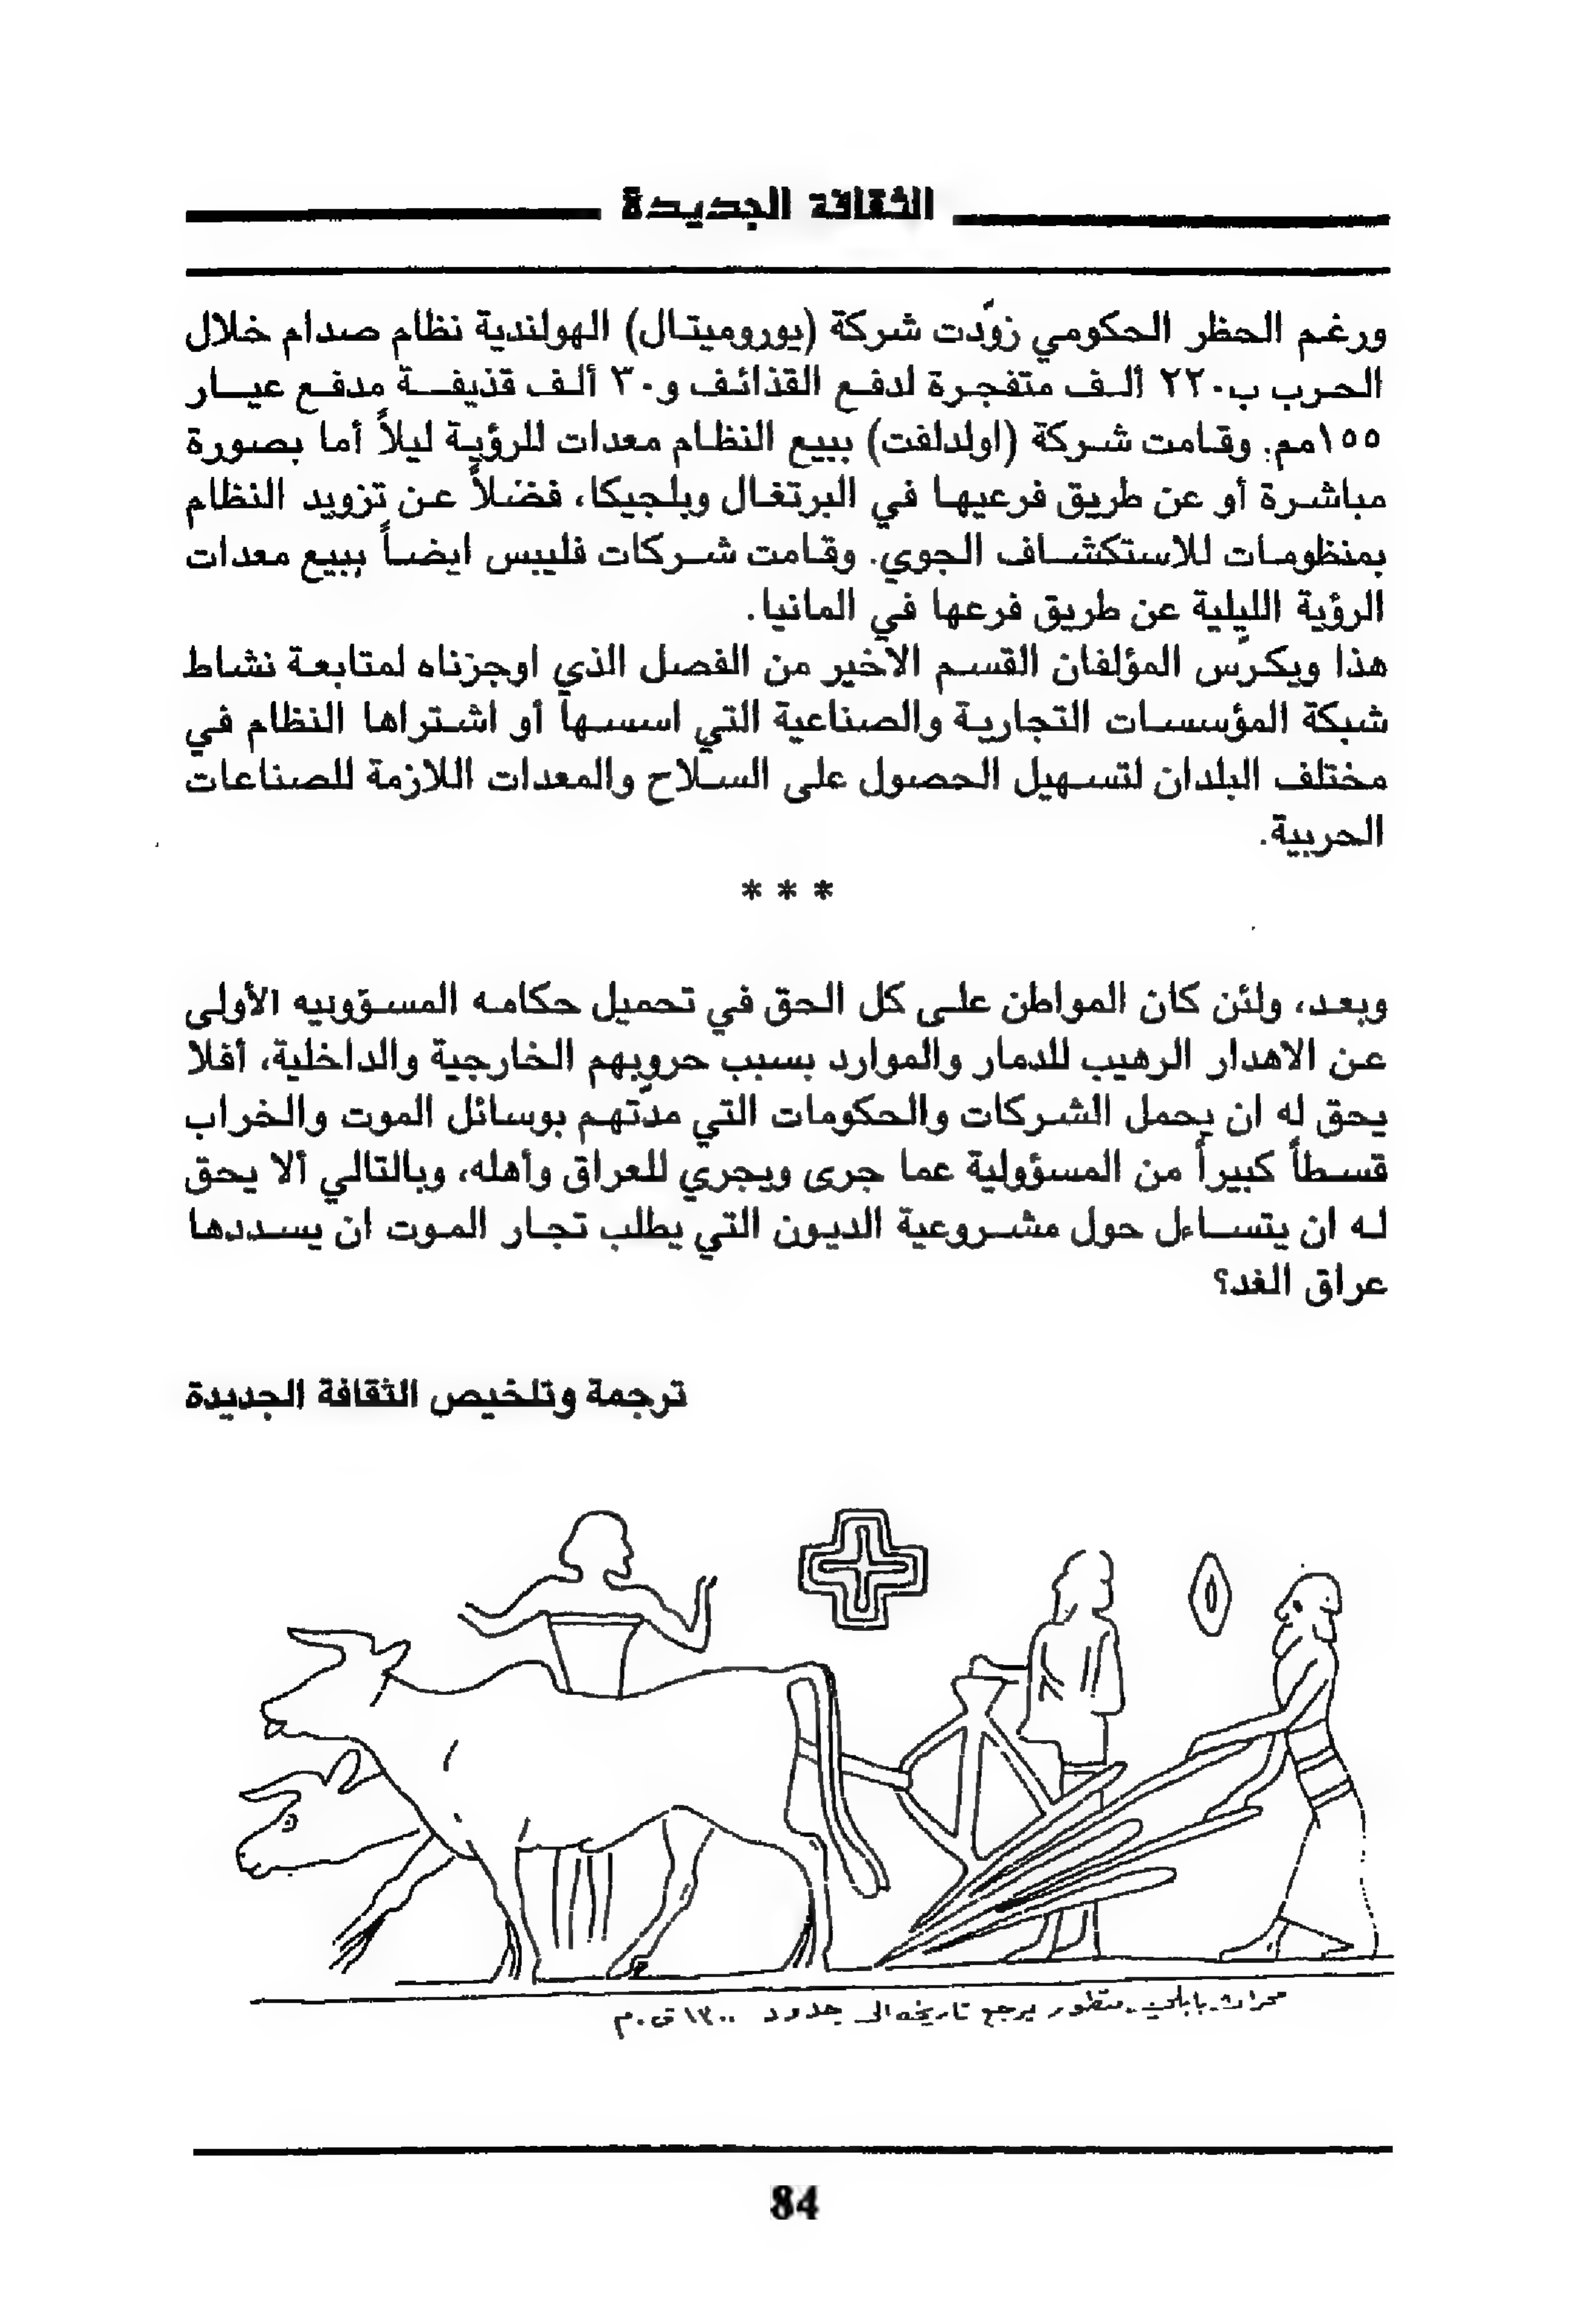 الثقافة الجديدة
ورغم الحظر الحكومي زوّدت شركة (يوروميتال) الهولندية نظام صدام خلال
الحرب ب٢٢٠ ألف متفجرة لدفع القذائف و٣٠ ألف قذيفة مدفع عيار
١٥٥مم. وقامت شركة (اولدلفت) ببيع النظام معدات للرؤية ليلاً أما بصورة
مباشرة أو عن طريق فرعيها في البرتغال وبلجيكا، فضلاً عن تزويد النظام
بمنظومات للاستكشاف الجوي. وقامت شركات فليبس ايضاً ببيع معدات
الرؤية الليلية عن طريق فرعها في المانيا.
هذا ويكرّس المؤلفان القسم الأخير من الفصل الذي اوجزناه لمتابعة نشاط
شبكة المؤسسات التجارية والصناعية التي اسسها أو اشتراها النظام في
مختلف البلدان لتسهيل الحصول على السلاح والمعدات اللازمة للصناعات
الحربية.
* * *
وبعد، ولئن كان المواطن على كل الحق في تحميل حكامه المسؤوبيه الأولى
عن الاهدار الرهيب للدمار والموارد بسبب حروبهم الخارجية والداخلية، أفلا
يحق له ان يحمل الشركات والحكومات التي مدّتهم بوسائل الموت والخراب
قسطاً كبيراً من المسؤولية عما جرى ويجري للعراق وأهله، وبالتالي ألا يحق
له ان يتساءل حول مشروعية الديون التي يطلب تجار الموت ان يسددها
عراق الغد؟
ترجمة وتلخيص الثقافة الجديدة
محراث بابلي متطور يرجع تاريخه الى حدود ١٣٠٠ ق.م
84